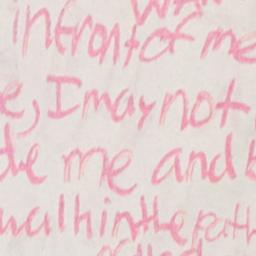 infrontof me
e, I may not
de me and b
walk in the path